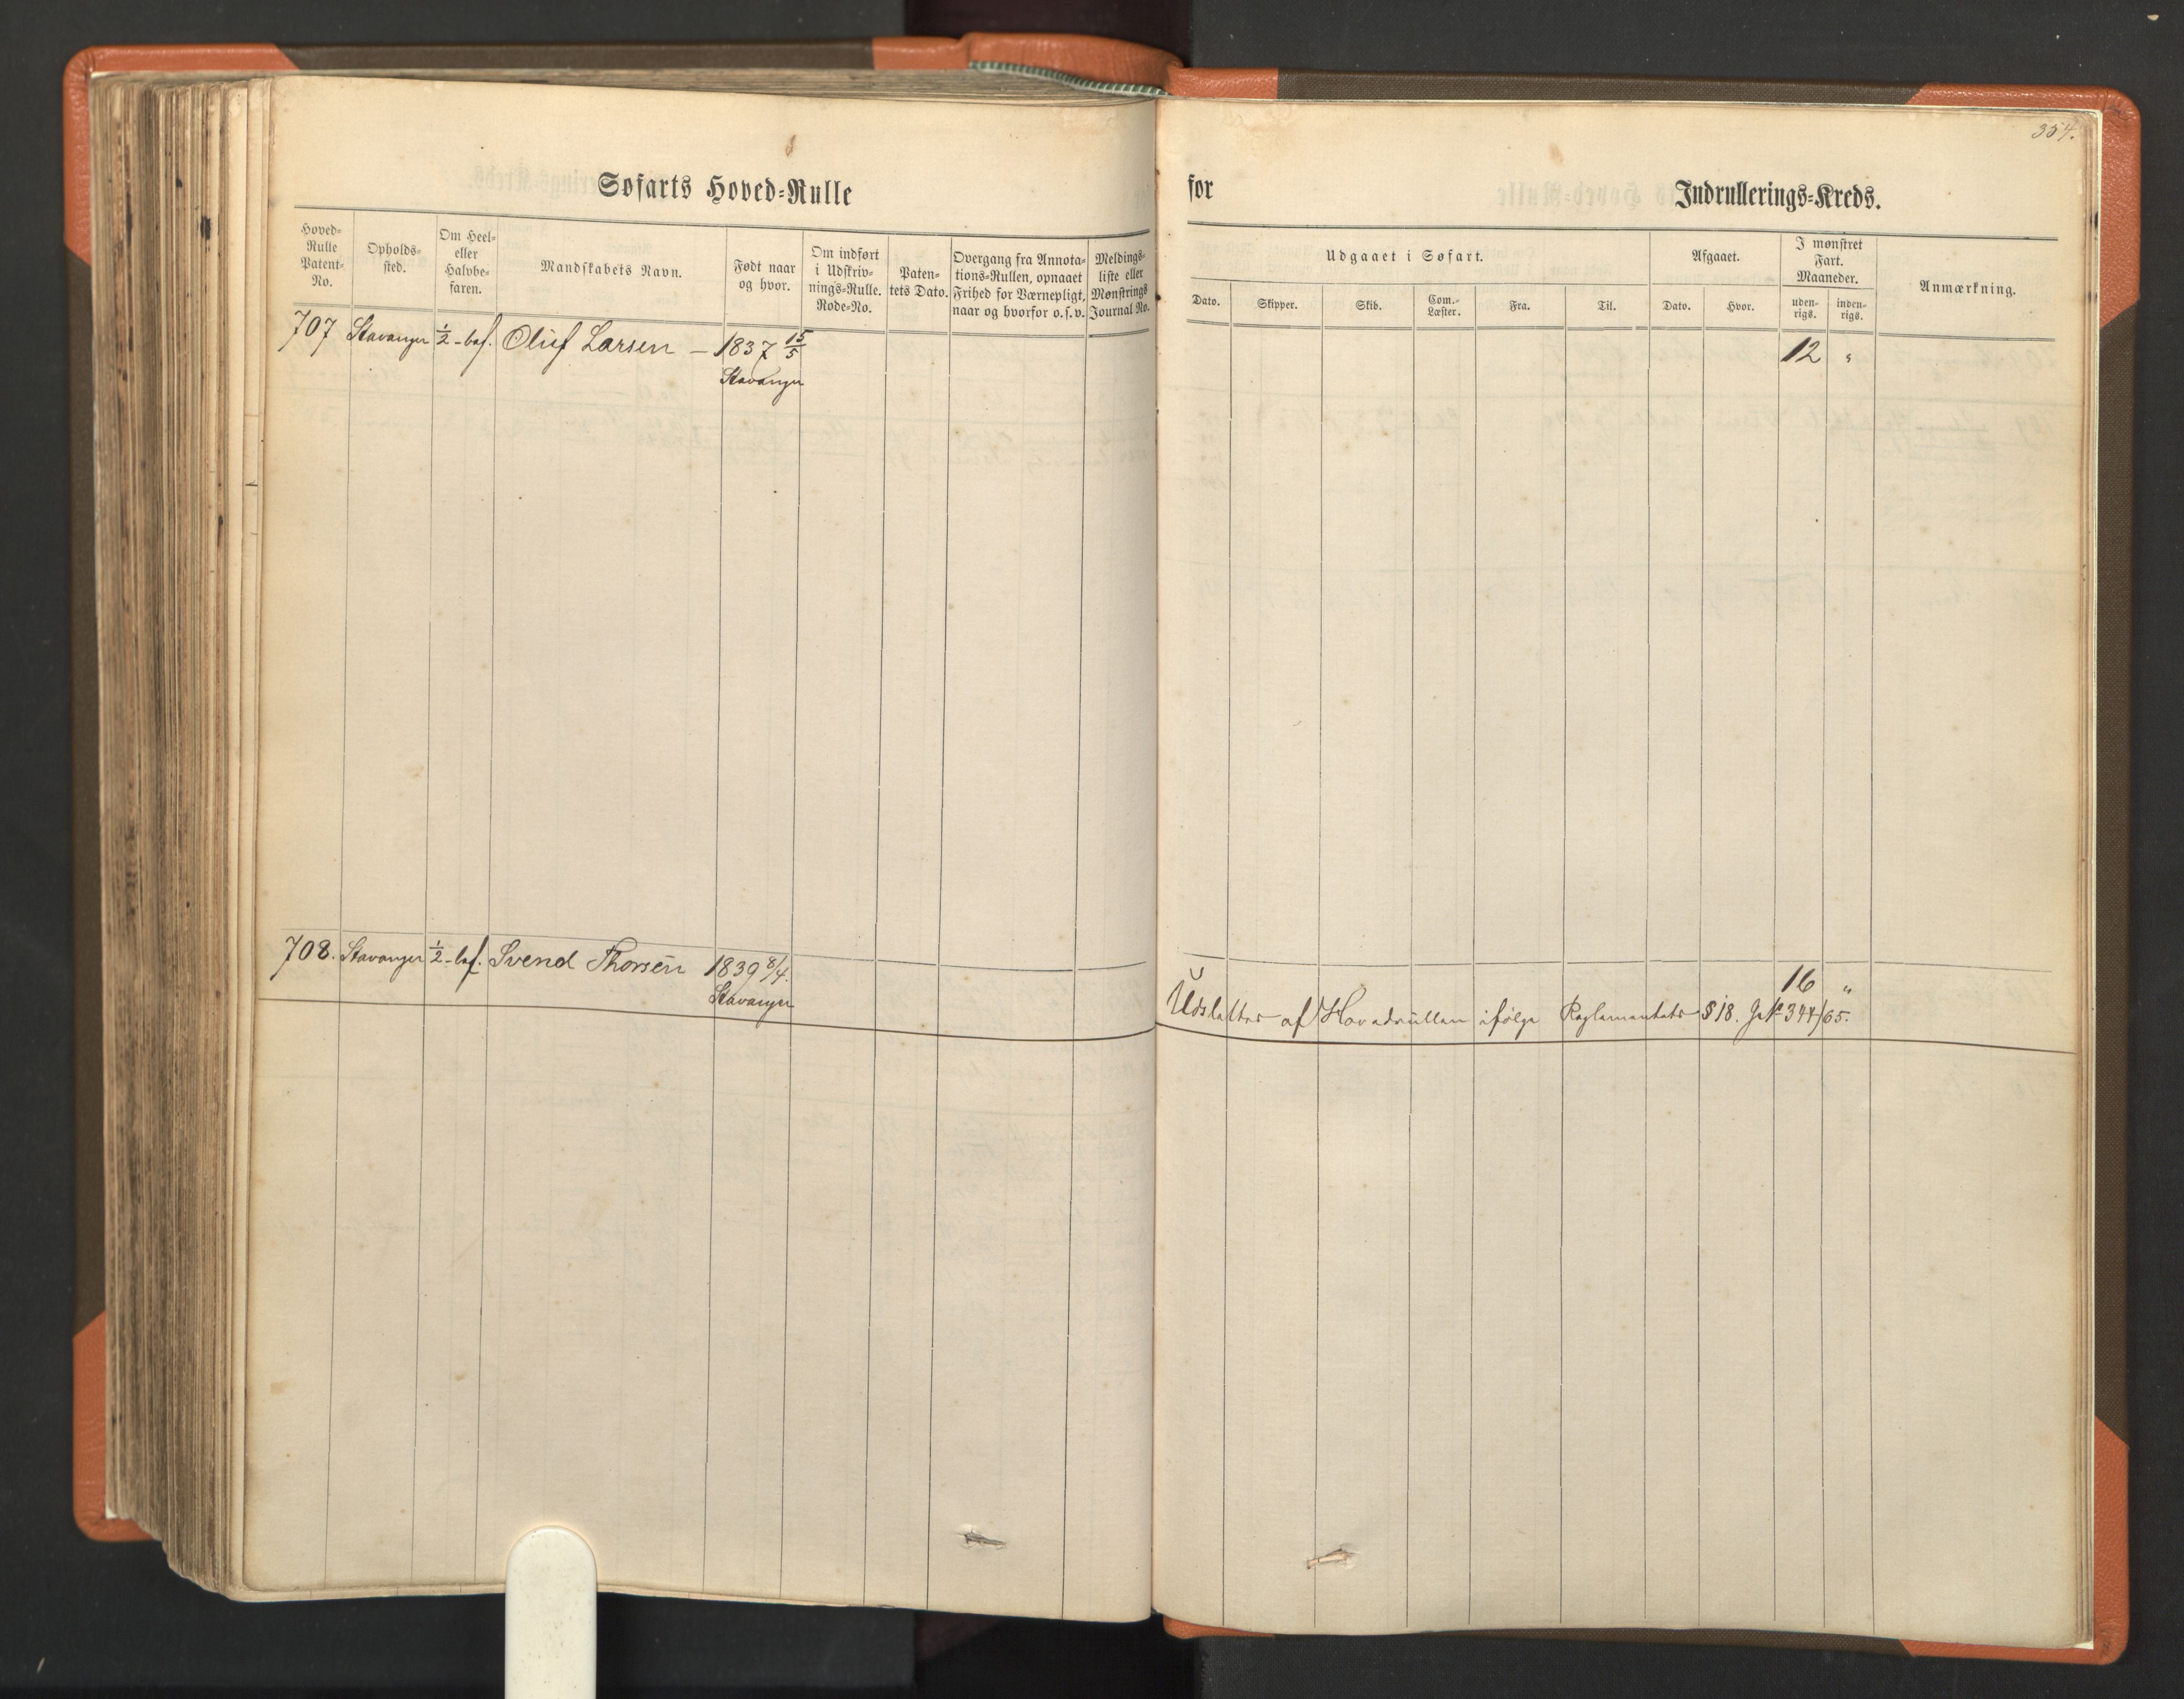 354.
Søfarts Hoved-Rulle for Indrullerings-Kreds.
Hoved-Rulle Patent-No.
Opholds-sted.
Om Heel- eller Halvbe-faren.
Mandskabets Navn.
Født naar og hvor.
Om indført i Udskriv-nings-Rulle. Rode-No.
Paten-tets Dato.
Overgang fra Annota-tions-Rullen, opnaaet Frihed for Værnepligt, naar og hvorfor o.s.v.
Meldings-liste eller Mønstrings Journal No.
Udgaaet i Søfart.
Dato. Skipper. Skib. Com.-Læster. Fra. Til.
Afgaaet.
Dato. Hvor.
I mønstret Fart. Maaneder.
uden-rigs. inden-rigs.
Anmærkning.
707 Stavanger ½-bef. Oluf Larsen – 1837 15/5 12 "
Stavanger
708. Stavanger ½-bef. Svend Thorsen 1839 8/4. 16 "
Stavanger
Udslettes af Hovedrullen ifølge Reglementets § 18. J. No 344/65.